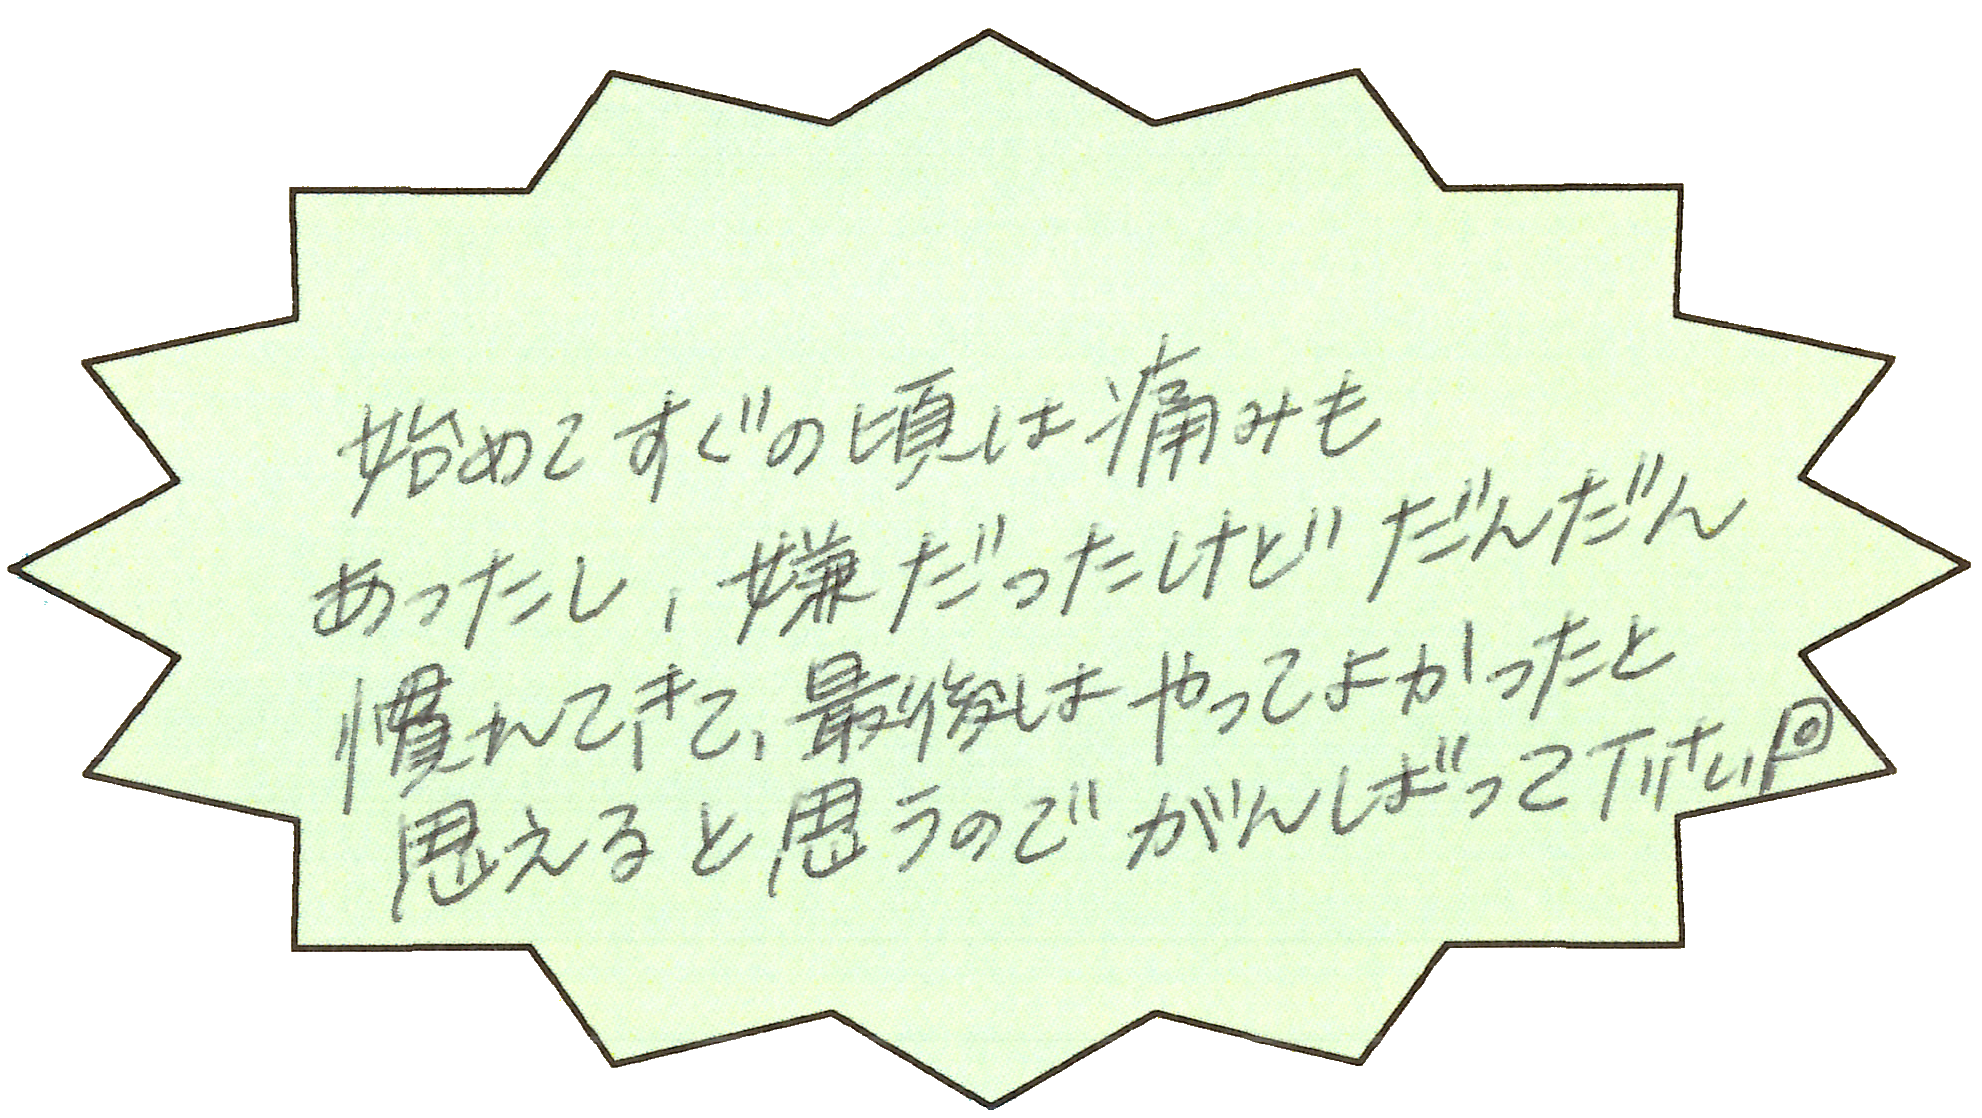 始めてすぐの頃は痛みも
あったし、嫌だったけどだんだん
慣れてきて、最後はやってよかったと
思えると思うのでがんばって下さい